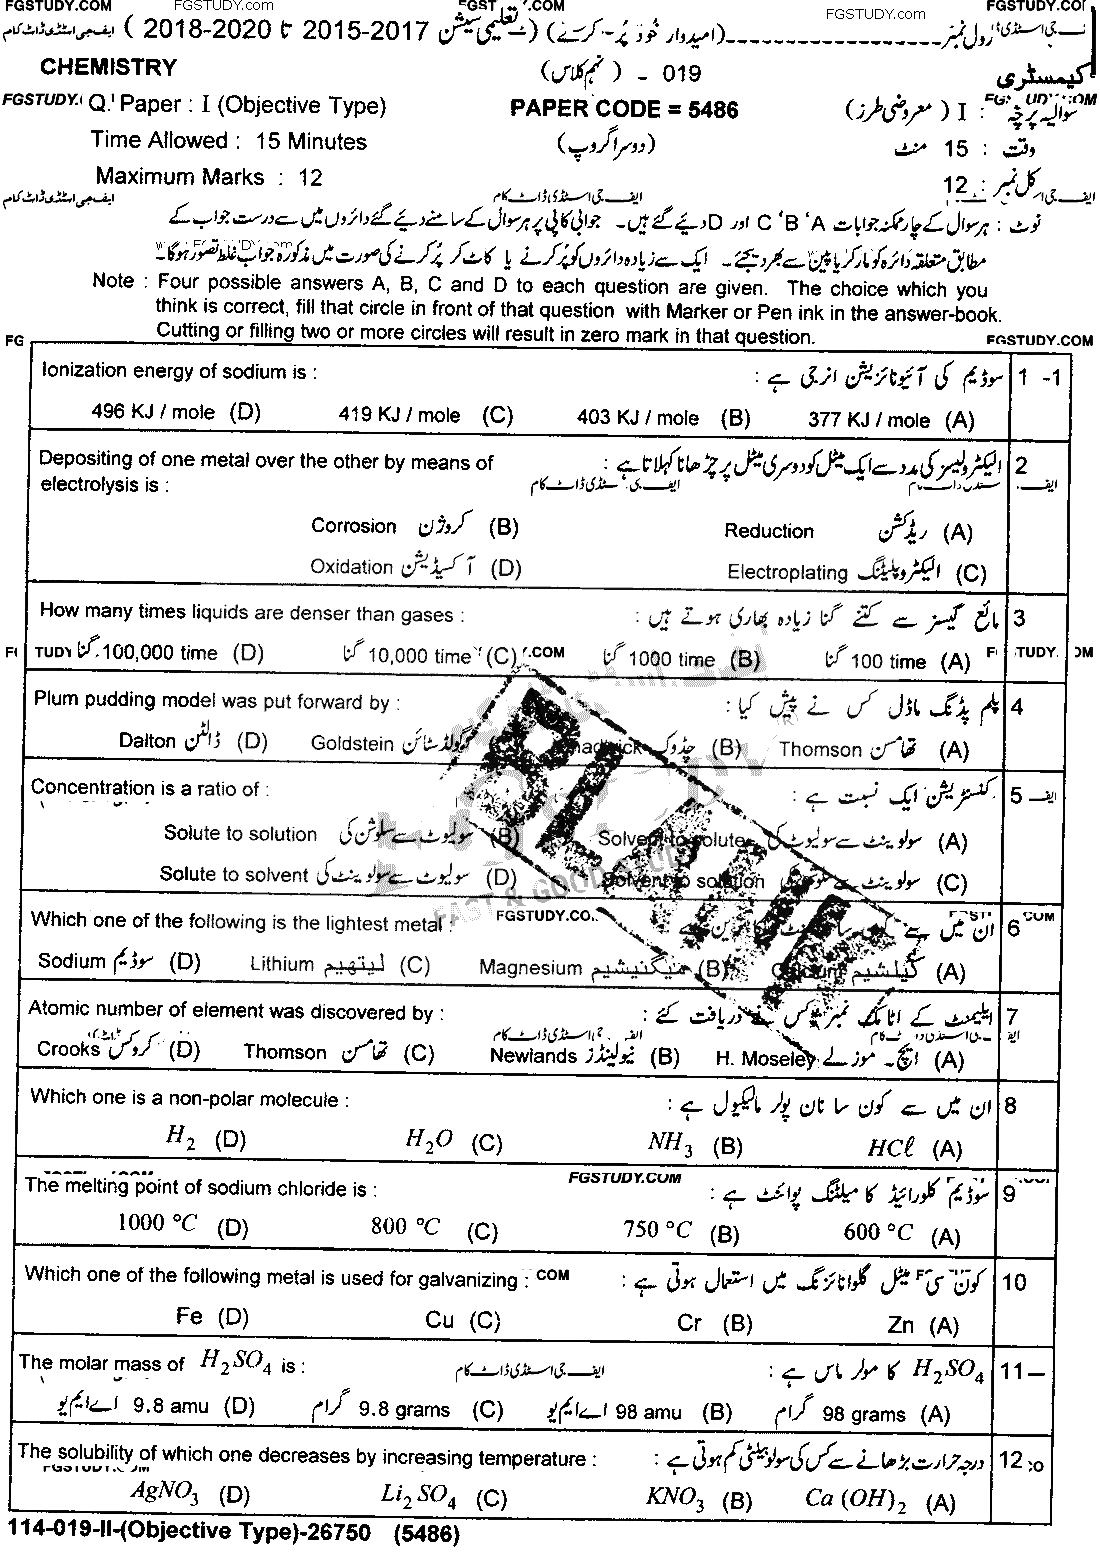 FGSTUDY.COM FGSTUDY.com FGST .COM FGSTUDY.com FGSTUDY.CO
ایف جی اسٹڈی ڈاٹ کام رول نمبر (امیدوار خود پُر کرے) (تعلیمی سیشن 2015-2017 تا 2018-2020)
CHEMISTRY 019 - (نہم کلاس) کیمسٹری
FGSTUDY. Q. Paper : I (Objective Type) PAPER CODE = 5486 سوالیہ پرچہ : I (معروضی طرز)
Time Allowed : 15 Minutes (دوسرا گروپ) وقت : 15 منٹ
Maximum Marks : 12 کل نمبر : 12
ایف جی اسٹڈی ڈاٹ کام ایف جی اسٹڈی ڈاٹ کام ایف جی
نوٹ : ہر سوال کے چار ممکنہ جوابات A ،B ،C اور D دیے گئے ہیں۔ جوابی کاپی پر ہر سوال کے سامنے دیے گئے دائروں میں سے درست جواب کے
مطابق متعلقہ دائرہ کو مارکر یا پین سے بھر دیجئے۔ ایک سے زیادہ دائروں کو پُر کرنے یا کاٹ کر پُر کرنے کی صورت میں مذکورہ جواب غلط تصور ہوگا۔
Note : Four possible answers A, B, C and D to each question are given. The choice which you
think is correct, fill that circle in front of that question with Marker or Pen ink in the answer-book.
Cutting or filling two or more circles will result in zero mark in that question.
FG FGSTUDY.COM
Ionization energy of sodium is : سوڈیم کی آئیونائزیشن انرجی ہے : 1 -1
496 KJ / mole (D) 419 KJ / mole (C) 403 KJ / mole (B) 377 KJ / mole (A)
Depositing of one metal over the other by means of الیکٹرولیسز کی مدد سے ایک میٹل کو دوسری میٹل پر چڑھانا کہلاتا ہے : 2
electrolysis is : ایف جی اسٹڈی ڈاٹ کام
Corrosion کروژن (B) Reduction ریڈکشن (A)
Oxidation آکسیڈیشن (D) Electroplating الیکٹروپلیٹنگ (C)
How many times liquids are denser than gases : مائع گیسز سے کتنے گنا زیادہ بھاری ہوتے ہیں : 3
TUDY گنا 100,000 time (D) گنا 10,000 time (C) .COM گنا 1000 time (B) گنا 100 time (A) F TUDY. OM
Plum pudding model was put forward by : پلم پڈنگ ماڈل کس نے پیش کیا : 4
Dalton ڈالٹن (D) Goldstein گولڈسٹائن چڈوک (B) Thomson تھامسن (A)
Concentration is a ratio of : کنسنٹریشن ایک نسبت ہے : 5
Solute to solution سولیوٹ سے سلوشن کی (B) Solvent to solute سولوینٹ سے سولیوٹ کی (A)
Solute to solvent سولیوٹ سے سولوینٹ کی (D) Solvent to solution سولوینٹ سے کی (C)
FAST & GOOD
Which one of the following is the lightest metal : FGSTUDY.CO ان میں سے 6 COM
Sodium سوڈیم (D) Lithium لیتھیم (C) Magnesium میگنیشیم (B) Calcium کیلشیم (A)
Atomic number of element was discovered by : ایلیمنٹ کے اٹامک نمبر کس نے دریافت کئے : 7
ایف جی اسٹڈی ڈاٹ کام
Crooks کروکس (D) Thomson تھامسن (C) Newlands نیولینڈز (B) H. Moseley ایچ۔ موزلے (A)
Which one is a non-polar molecule : ان میں سے کون سا نان پولر مالیکیول ہے : 8
H₂ (D) H₂O (C) NH₃ (B) HCℓ (A)
FGSTUDY.COM
The melting point of sodium chloride is : سوڈیم کلورائیڈ کا میلٹنگ پوائنٹ ہے : 9
1000 °C (D) 800 °C (C) 750 °C (B) 600 °C (A)
Which one of the following metal is used for galvanizing : COM کون سی میٹل گلوانائزنگ میں استعمال ہوتی ہے : 10
Fe (D) Cu (C) Cr (B) Zn (A)
The molar mass of H₂SO₄ is : ایف جی اسٹڈی ڈاٹ کام H₂SO₄ کا مولر ماس ہے : 11
اے ایم یو 9.8 amu (D) گرام 9.8 grams (C) اے ایم یو 98 amu (B) گرام 98 grams (A)
The solubility of which one decreases by increasing temperature : درجہ حرارت بڑھانے سے کس کی سولوبیلٹی کم ہوتی ہے : 12
AgNO₃ (D) Li₂SO₄ (C) KNO₃ (B) Ca(OH)₂ (A)
114-019-II-(Objective Type)-26750 (5486)